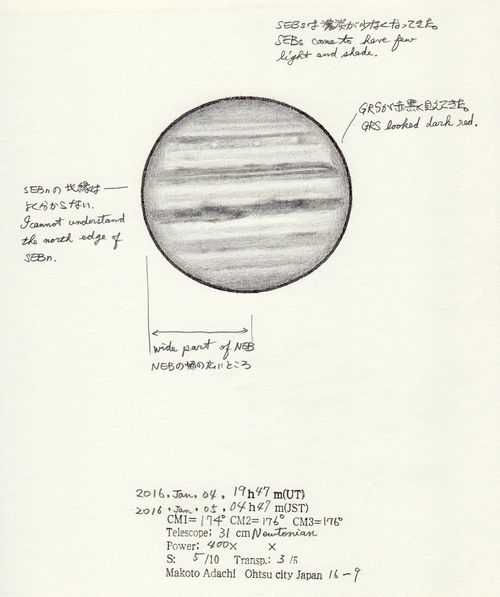 SEBsは濃淡が少なくなってきた。
SEBs come to have few
light and shade.
GRSが赤黒く見えてきた。
GRS looked dark red.
SEBnの北縁は
よく分からない。
I cannot understand
the north edge of
SEBn.
wide part of NEB
NEBの幅の広いところ
2016. Jan. 04, 19h47 m(UT)
2016. Jan. 05, 04h47 m(JST)
CM1=174° CM2=176° CM3=176°
Telescope: 31 cm Newtonian
Power: 400× ×
S: 5/10 Transp.: 3/5
Makoto Adachi Ohtsu city Japan 16-9